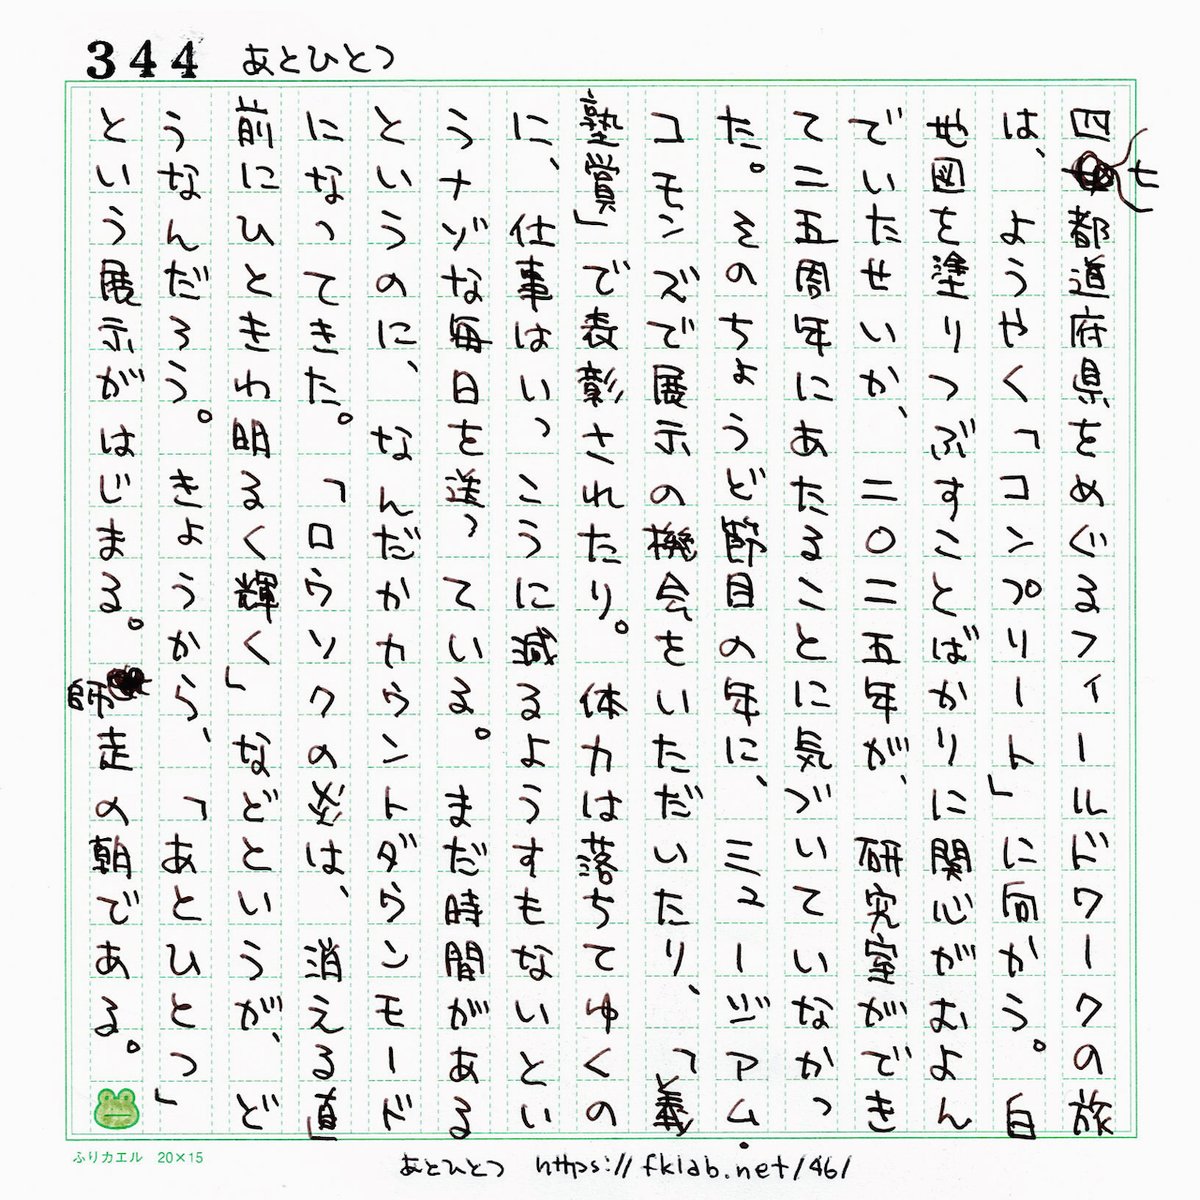 344 あとひとつ
四七都道府県をめぐるフィールドワークの旅
は、ようやく「コンプリート」に向かう。白
地図を塗りつぶすことばかりに関心がおよん
でいたせいか、二〇二五年が、研究室ができ
て二五周年にあたることに気づいていなかっ
た。そのちょうど節目の年に、ミュージアム・
コモンズで展示の機会をいただいたり、「義
塾賞」で表彰されたり。体力は落ちてゆくの
に、仕事はいっこうに減るようすもないとい
うナゾな毎日を送っている。まだ時間がある
というのに、なんだかカウントダウンモード
になってきた。「ロウソクの炎は、消える直
前にひときわ明るく輝く」などというが、ど
うなんだろう。きょうから、「あとひとつ」
という展示がはじまる。師走の朝である。
ふりカエル 20×15
あとひとつ https://fklab.net/46/